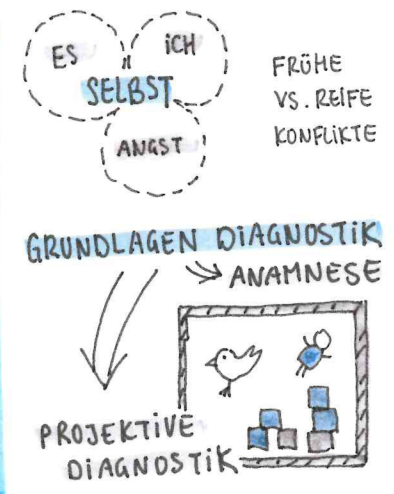 ES
ICH
SELBST
ANGST
FRÜHE
VS. REIFE
KONFLIKTE
GRUNDLAGEN DIAGNOSTIK
ANAMNESE
PROJEKTIVE
DIAGNOSTIK